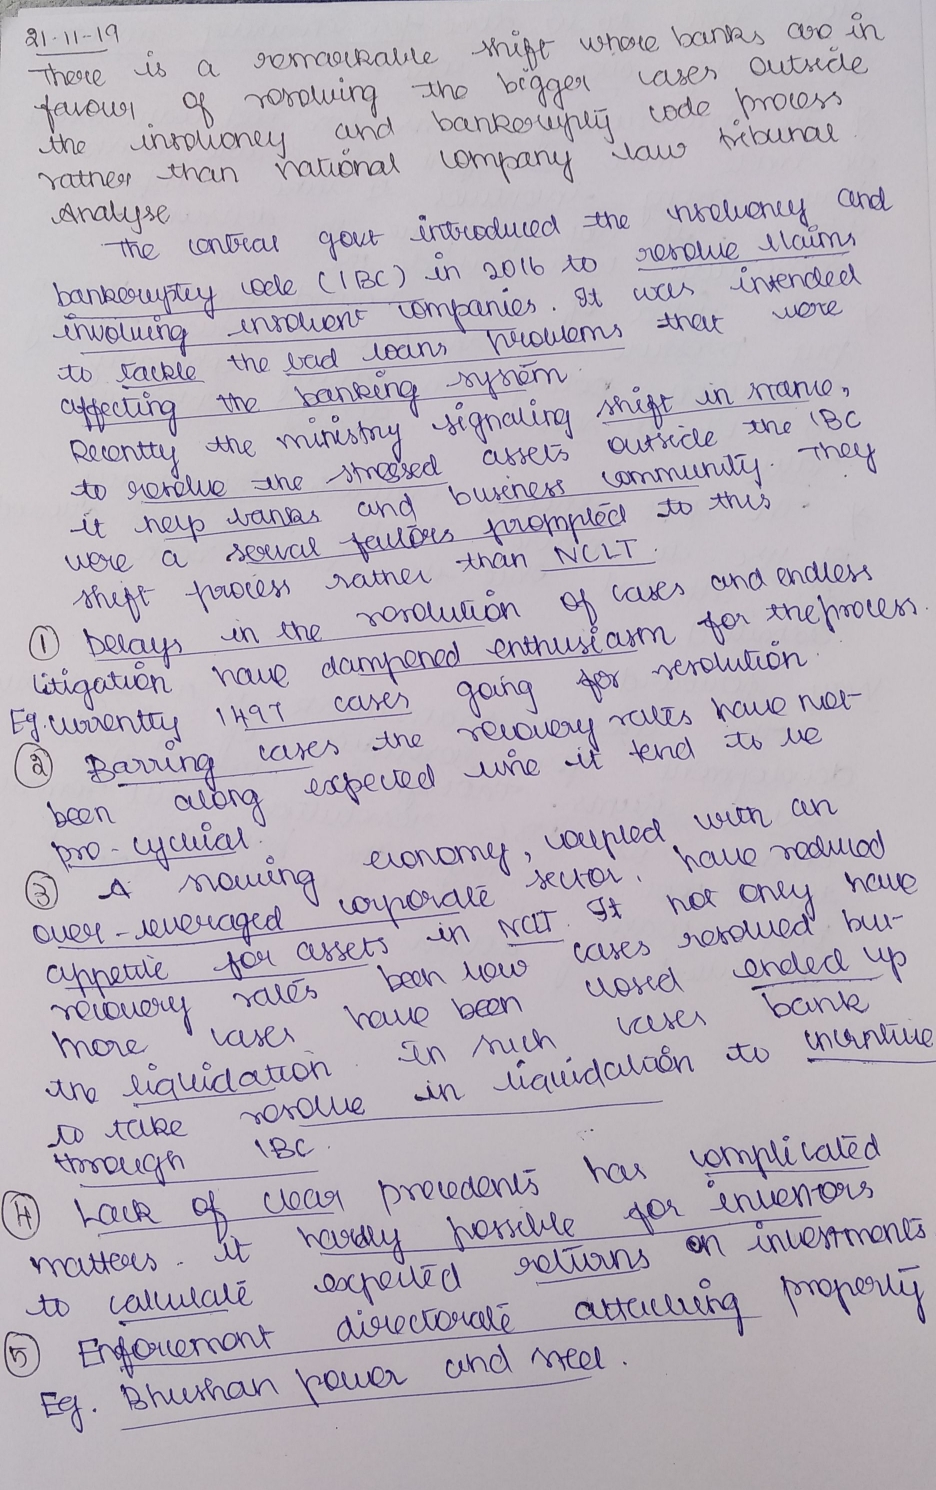 21-11-19
There is a remarkable shift where banks are in
favour of resolving the bigger cases outside
the insolvency and bankruptcy code process
rather than national company law tribunal.
Analyse
The central govt introduced the insolvency and
bankruptcy code (IBC) in 2016 to resolve claims
involving insolvent companies. It was intended
to tackle the bad loans problems that were
affecting the banking system.
Recently the ministry signaling shift in stance,
to resolve the stressed assets outside the IBC
it help banks and business community. They
were a several factors prompted to this
shift process rather than NCLT.
① Delays in the resolution of cases and endless
litigation have dampened enthusiasm for the process.
Eg. currently 1497 cases going for resolution.
② Barring cases the recovery rates have not
been along expected line it tend to be
pro-cyclical.
③ A slowing economy, coupled with an
over-leveraged corporate sector. have reduced
appetite for assets in NCLT. It not only have
recovery rates been low cases resolved but
more cases have been closed ended up
the liquidation. In such cases bank
to take resolve in liquidation to incentive
through IBC.
④ Lack of clear precedents has complicated
matters. it hardly possible for investors
to calculate expected returns on investments
⑤ Enforcement directorate attaching property
Eg. Bhushan power and steel.